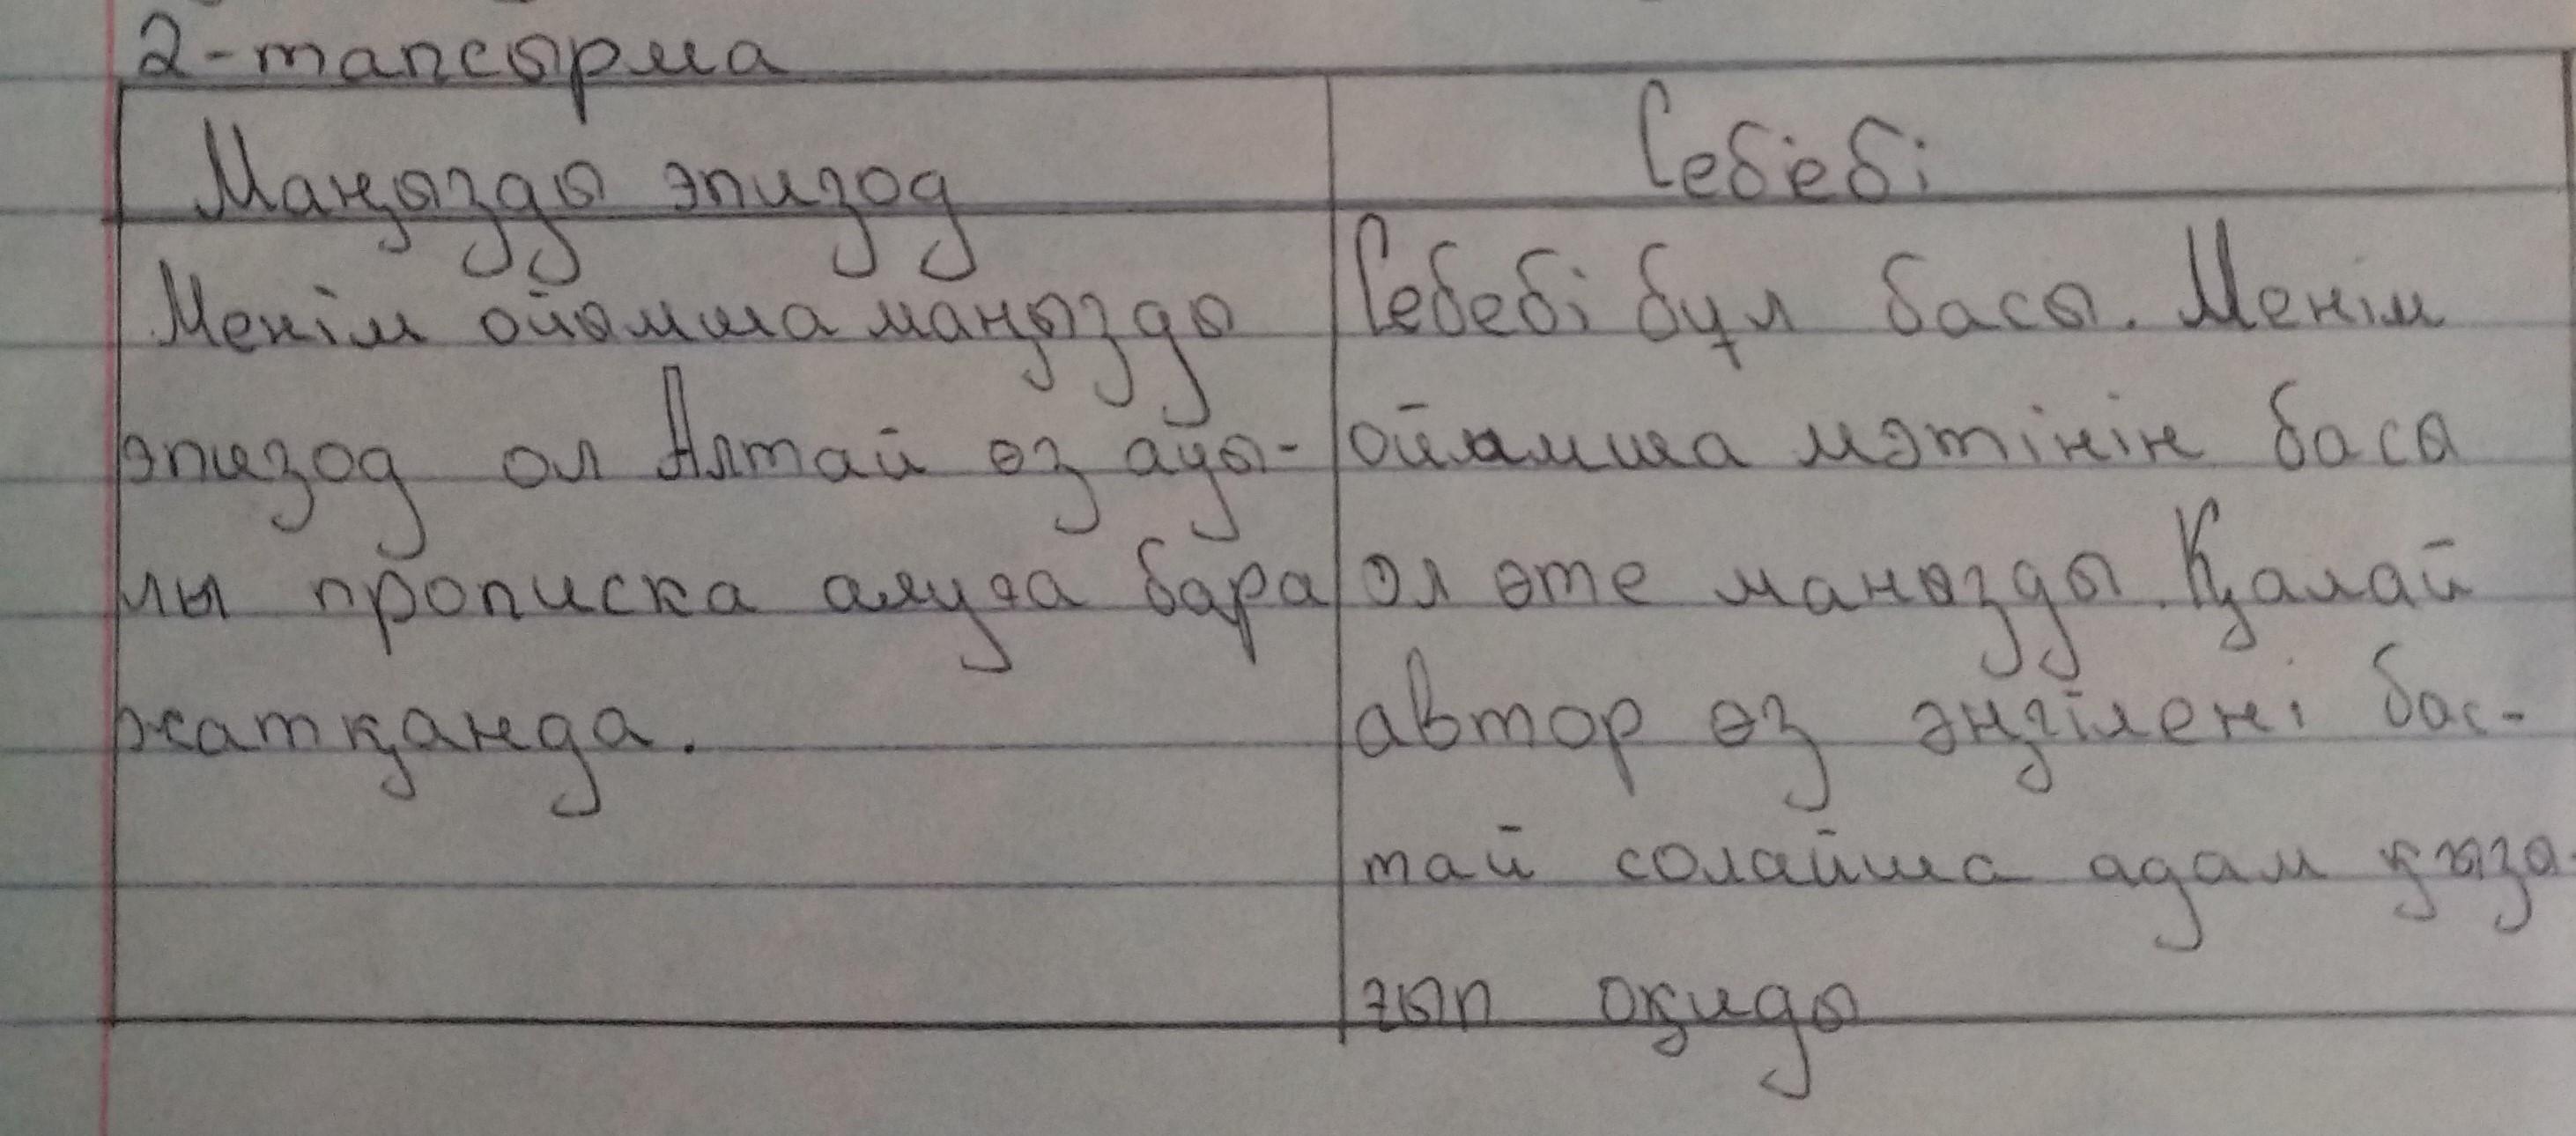 2-тапсырма
Маңызды эпизод
Себебі
Менім ойымша маңызды
эпизод ол Алтай өз ауы-
лы прописка алуға бара
жатқанда.
Себебі бұл басы. Менім
ойымша мәтінін басы
ол өте маңызды. Қалай
автор өз әнгілені бас-
тай солайша адам қыза-
ғып оқиды